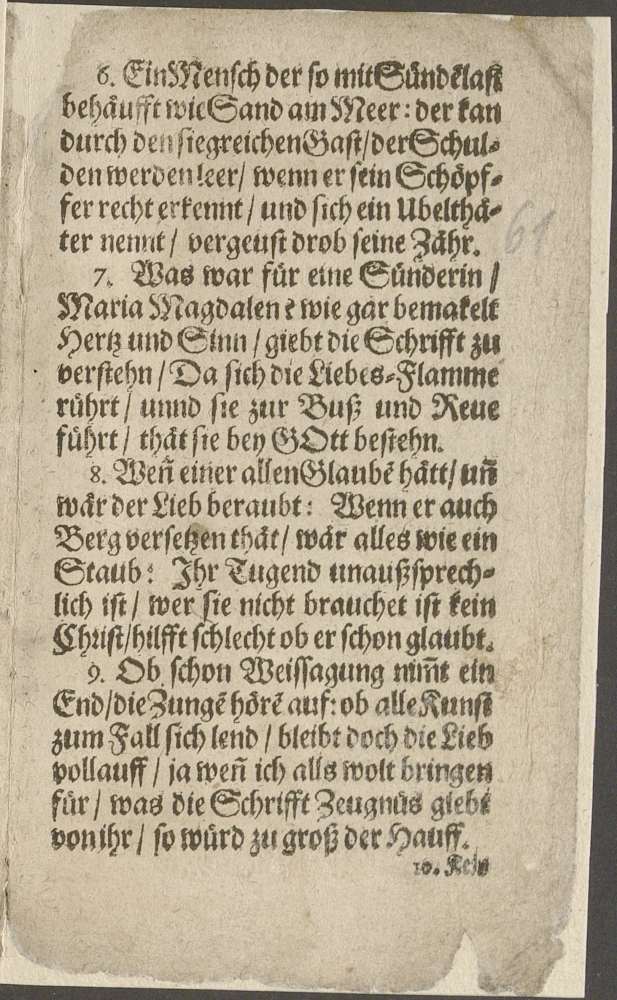 6. Ein Mensch der so mit Sündẽlast
behäufft wie Sand am Meer: der kan
durch den siegreichen Gast/ der Schul-
den werden leer/ wenn er sein Schöpf-
fer recht erkennt / und sich ein Ubelthä-
ter nennt / vergeust drob seine Zähr.
7. Was war für eine Sünderin /
Maria Magdalen? wie gar bemakelt
Hertz und Sinn / giebt die Schrifft zu
verstehn / Da sich die Liebes-Flamme
rührt / unnd sie zur Buß und Reue
führt / thät sie bey GOtt bestehn.
8. Weñ einer allen Glaubẽ hätt/ uñ
wär der Lieb beraubt: Wenn er auch
Berg versetzen thät/ wär alles wie ein
Staub: Ihr Tugend unaußsprech-
lich ist / wer sie nicht brauchet ist kein
Christ/ hilfft schlecht ob er schon glaubt.
9. Ob schon Weissagung nim̃t ein
End/ die Zungẽ hörẽ auf: ob alle Kunst
zum Fall sich lend / bleibt doch die Lieb
vollauff / ja weñ ich alls wolt bringen
für / was die Schrifft Zeugnüs giebt
von ihr / so würd zu groß der Hauff.
10. Kein